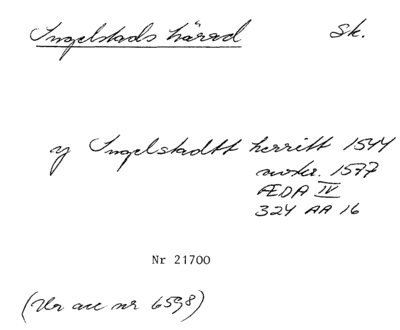 Ingelstads härad Sk.
y Ingelstadtt herritt 1544
avskr. 1577
ÆDA IV
324 AA 16
Nr 21700
(Ur acc nr 6598)